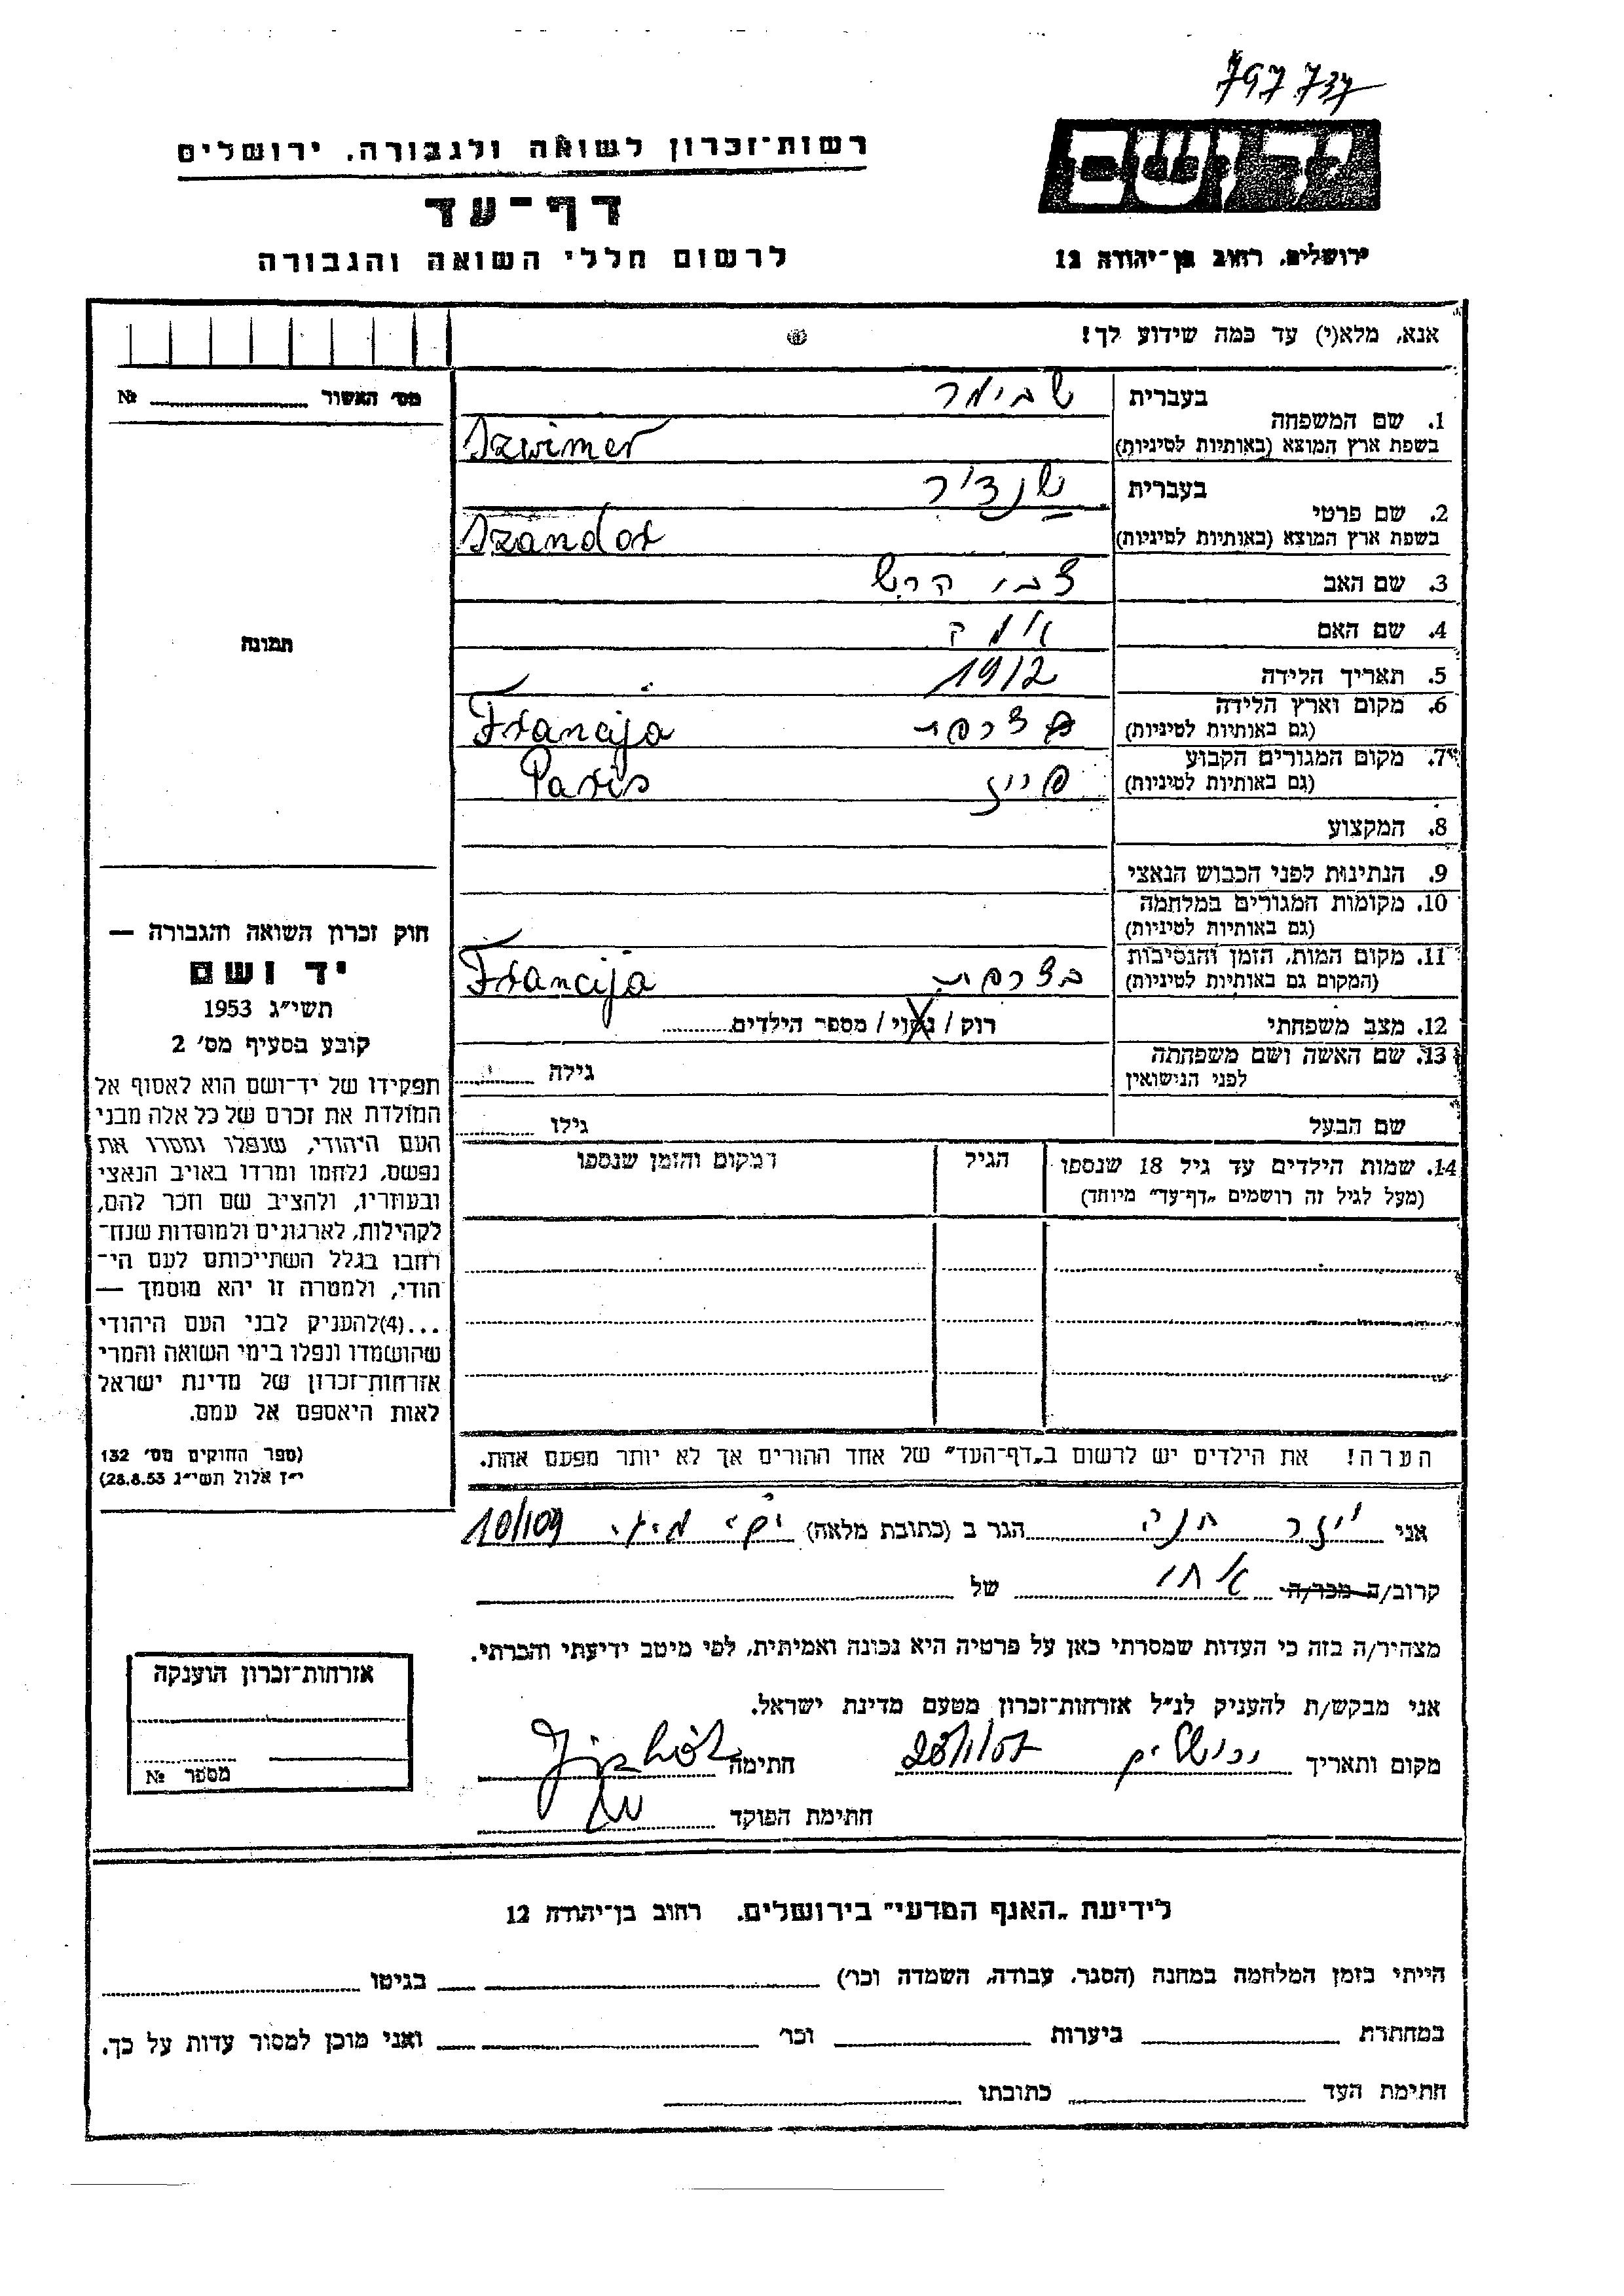 797737
יד ושם
רשות־זכרון לשואה ולגבורה, ירושלים
דף־עד
לרשום חללי השואה והגבורה
ירושלים, רחוב בן־יהודה 12
אנא, מלא(י) עד כמה שידוע לך!
מס׳ האשור № 
1. שם המשפחה בעברית שבימר
בשפת ארץ המוצא (באותיות לטיניות) Szwimer
2. שם פרטי בעברית
בשפת ארץ המוצא (באותיות לטיניות) Szandor
3. שם האב צבי הרש
4. שם האם
5. תאריך הלידה 1912
6. מקום וארץ הלידה צרפת
(גם באותיות לטיניות) Francija
7. מקום המגורים הקבוע
(גם באותיות לטיניות) Paris
8. המקצוע
9. הנתינות לפני הכבוש הנאצי
10. מקומות המגורים במלחמה
(גם באותיות לטיניות)
11. מקום המות, הזמן והנסיבות בצרפת
(המקום גם באותיות לטיניות) Francija
12. מצב משפחתי רוק / נשוי / מספר הילדים
13. שם האשה ושם משפחתה
לפני הנישואין גילה
שם הבעל גילו
14. שמות הילדים עד גיל 18 שנספו הגיל המקום והזמן שנספו
(מעל לגיל זה רושמים „דף־עד״ מיוחד)
הערה! את הילדים יש לרשום ב„דף־העד״ של אחד ההורים אך לא יותר מפעם אחת.
תמונה
חוק זכרון השואה והגבורה —
יד ושם
תשי״ג 1953
קובע בסעיף מס׳ 2
תפקידו של יד־ושם הוא לאסוף אל
המולדת את זכרם של כל אלה מבני
העם היהודי, שנפלו ומסרו את
נפשם, נלחמו ומרדו באויב הנאצי
ובעוזריו, ולהציב שם וזכר להם,
לקהילות, לארגונים ולמוסדות שנח־
רחבו בגלל השתייכותם לעם הי־
הודי, ולמטרה זו יהא מוסמך —
...(4)להעניק לבני העם היהודי
שהושמדו ונפלו בימי השואה והמרי
אזרחות־זכרון של מדינת ישראל
לאות היאספם אל עמם.
(ספר החוקים מס׳ 132
י״ז אלול תשי״ג 28.8.53)
אני חנה הגר ב (כתובת מלאה) 10/109
קרוב/ה מכר/ה אחי של
מצהיר/ה בזה כי העדות שמסרתי כאן על פרטיה היא נכונה ואמיתית, לפי מיטב ידיעתי והכרתי.
אני מבקש/ת להעניק לנ״ל אזרחות־זכרון מטעם מדינת ישראל.
מקום ותאריך ירושלים חתימה
חתימת הפוקד
אזרחות־זכרון הוענקה
מספר №
לידיעת „האגף המדעי״ בירושלים, רחוב בן־יהודה 12
הייתי בזמן המלחמה במחנה (הסגר, עבודה, השמדה וכו׳) בגיטו
במחתרת ביערות וכו׳ ואני מוכן למסור עדות על כך.
חתימת העד כתובתו